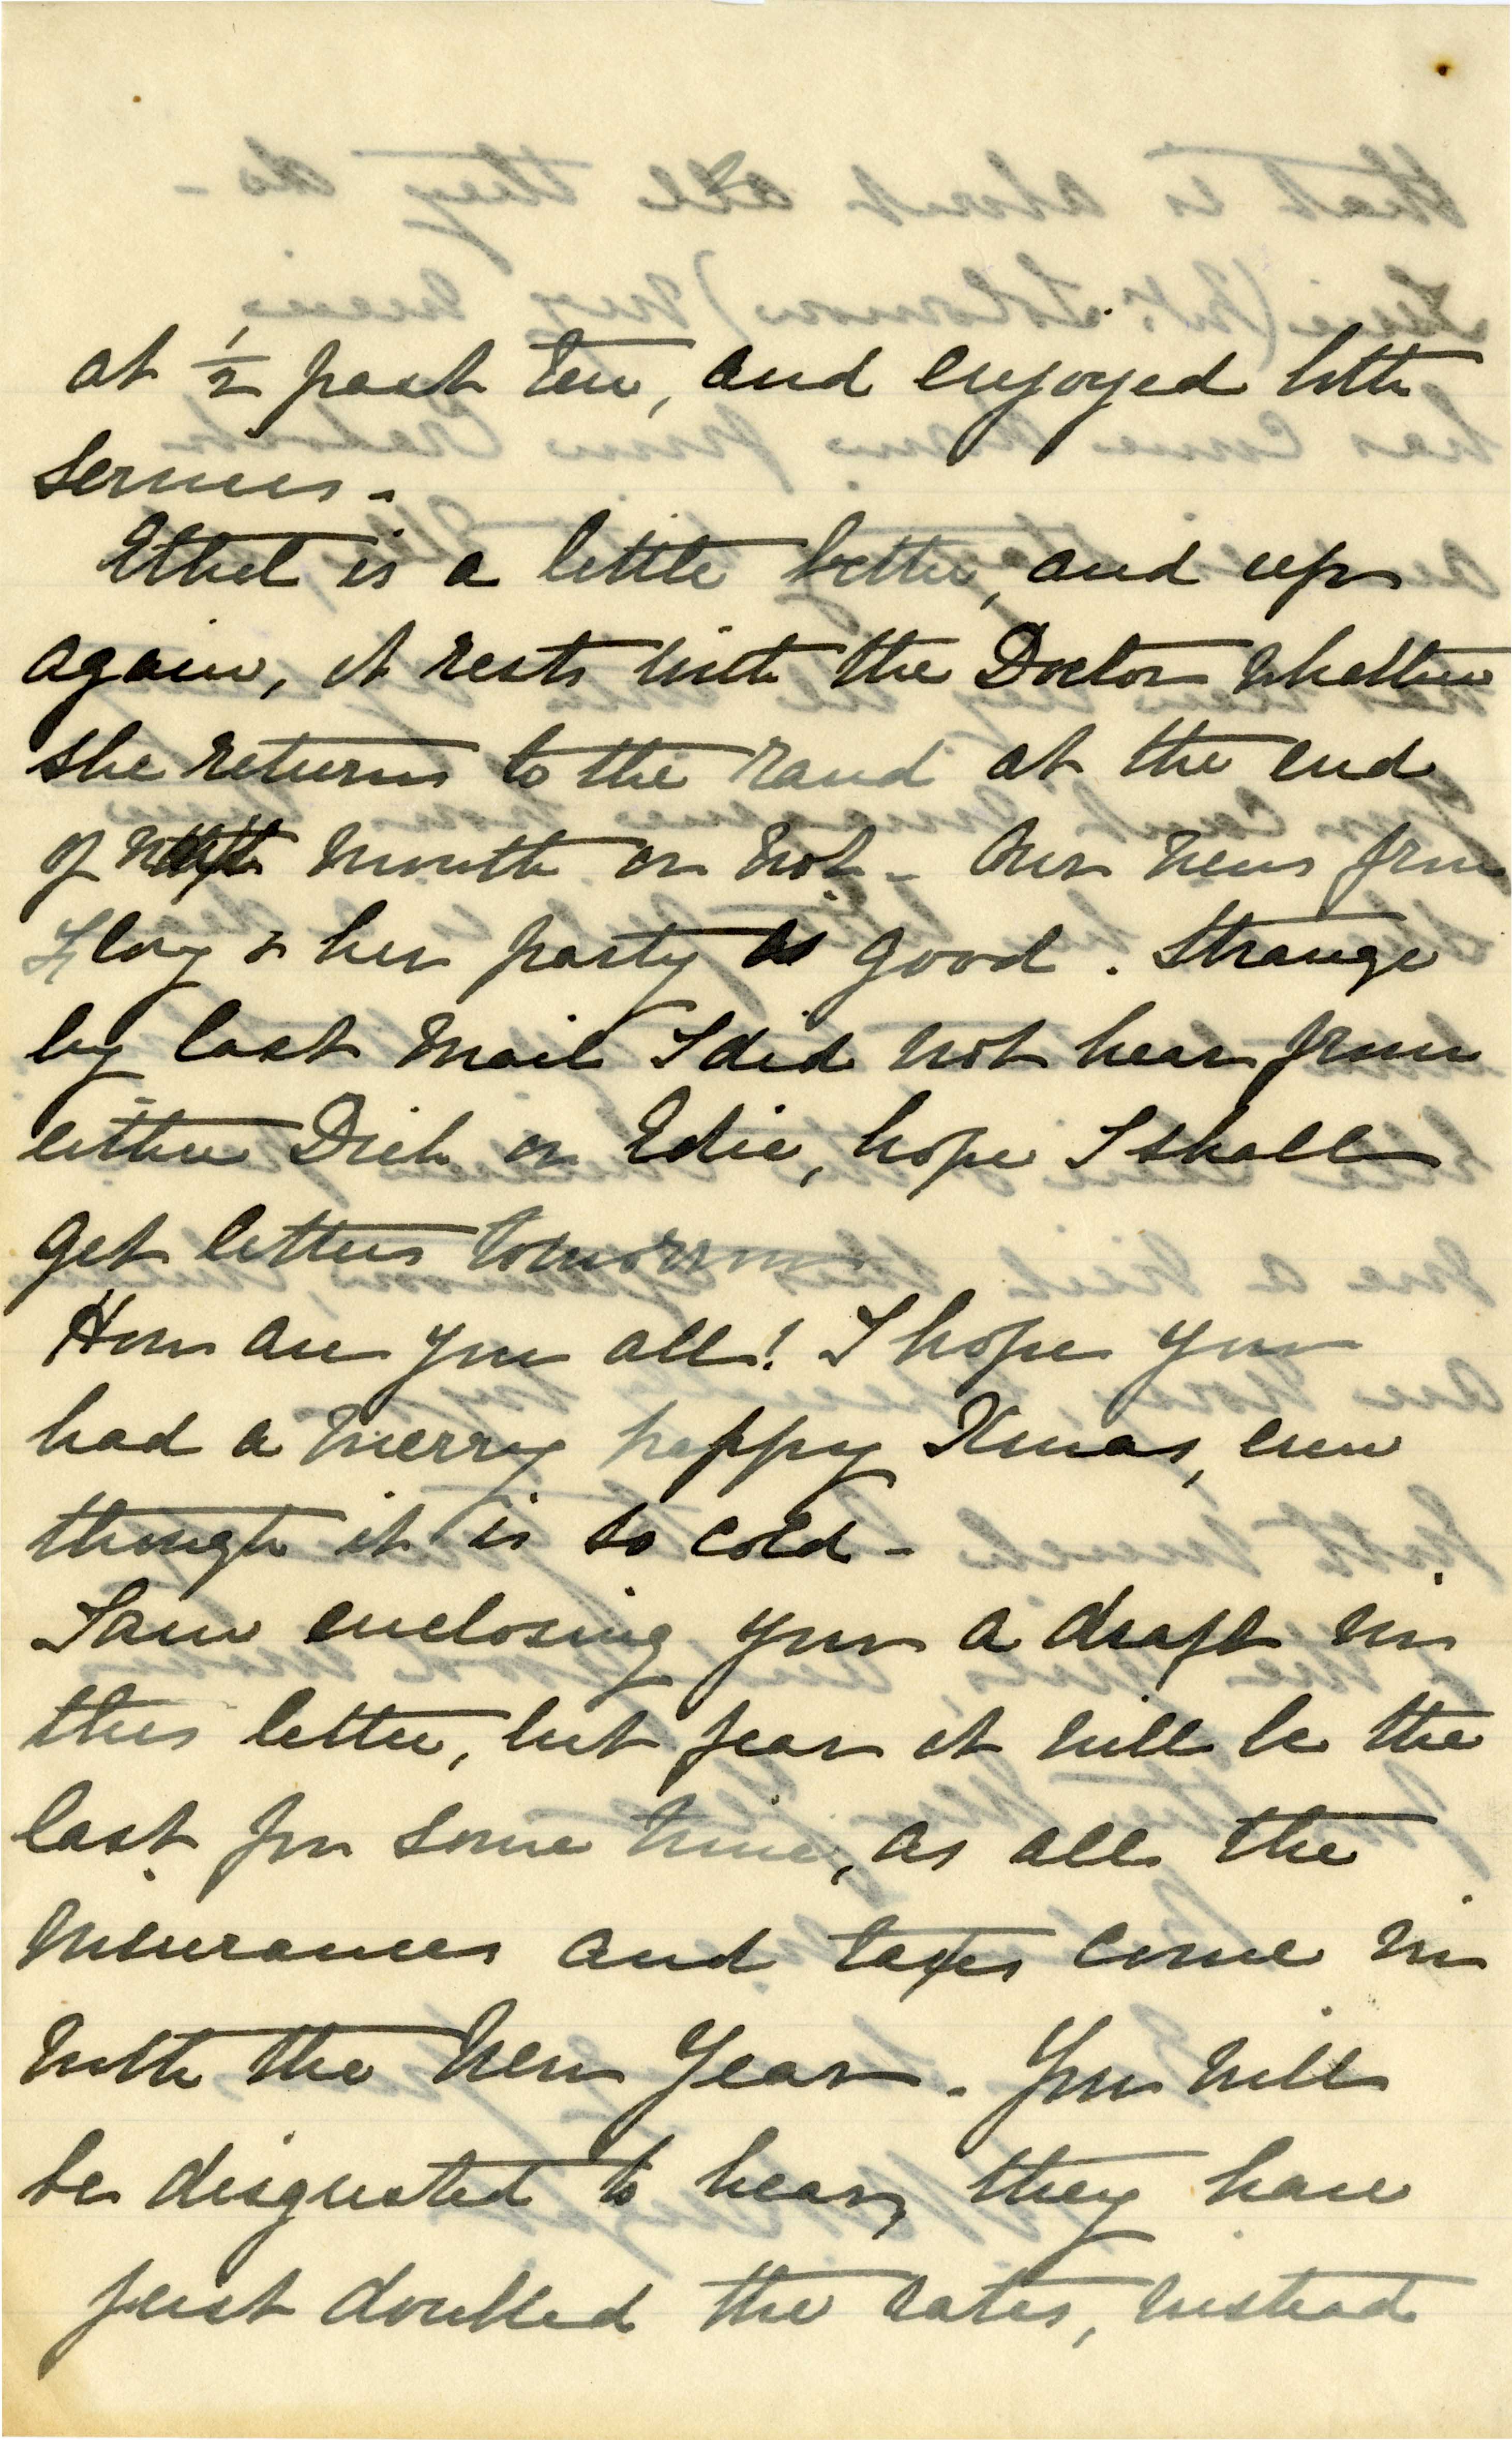 at ½ past ten, and enjoyed both
services -
Ethel is a little better, and up
again, it rests with the Doctor whether
she returns to the rand at the end
of next month or not - Our news from
Flory & her party is good. Strange
by last mail I did not hear from
either Dick or Edie, hope I shall
get letters tomorrow
How are you all! I hope you
had a merry happy Xmas, even
though it is so cold -
I am enclosing you a draft in
this letter, but fear it will be the
last for some time, as all the
insurances and taxes come in
with the New Year - You will
be disgusted to hear, they have
just doubled the rates, instead